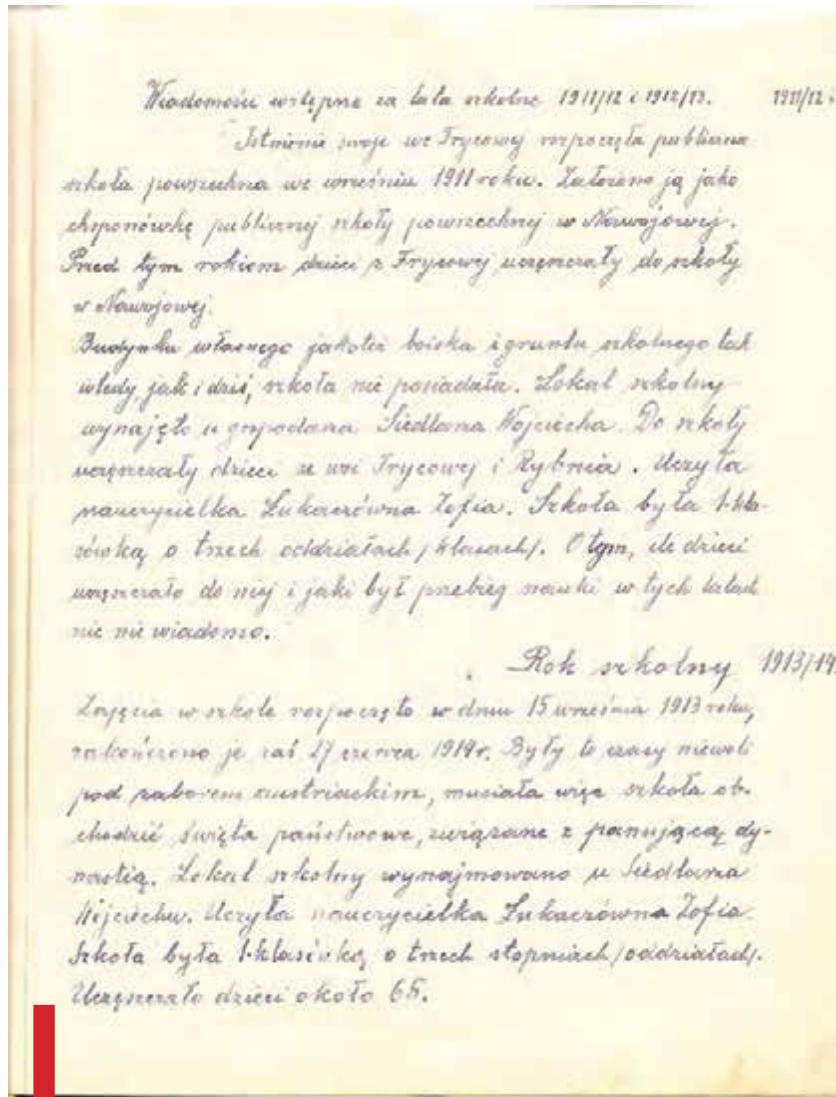 Wiadomości wstępne za lata szkolne 1911/12 i 1912/13. 1911/12.
Istnienie swoje we Frycowej rozpoczęła publiczna
szkoła powszechna we wrześniu 1911 roku. Założono ją jako
eksponówkę publicznej szkoły powszechnej w Nawojowej.
Przed tym rokiem dzieci z Frycowej uczęszczały do szkoły
w Nawojowej.
Budynku własnego jakoteż boiska i gruntu szkolnego tak
wtedy, jak i dziś, szkoła nie posiadała. Lokal szkolny
wynajęto u gospodarza Siedlarza Wojciecha. Do szkoły
uczęszczały dzieci ze wsi Frycowej i Rybnia. Uczyła
nauczycielka Łukaczówna Zofia. Szkoła była 1-kla-
sówką o trzech oddziałach /klasach/. O tym, ile dzieci
uczęszczało do niej i jaki był przebieg nauki w tych latach
nic nie wiadomo.
Rok szkolny 1913/14
Zajęcia w szkole rozpoczęto w dniu 15 września 1913 roku,
zakończono je zaś 27 czerwca 1914 r. Były to czasy niewoli
pod zaborem austriackim, musiała więc szkoła ob-
chodzić święta państwowe, związane z panującą dy-
nastią. Lokal szkolny wynajmowano u Siedlarza
Wojciecha. Uczyła nauczycielka Łukaczówna Zofia.
Szkoła była 1-klasówką o trzech stopniach /oddziałach/.
Uczęszczało dzieci około 65.